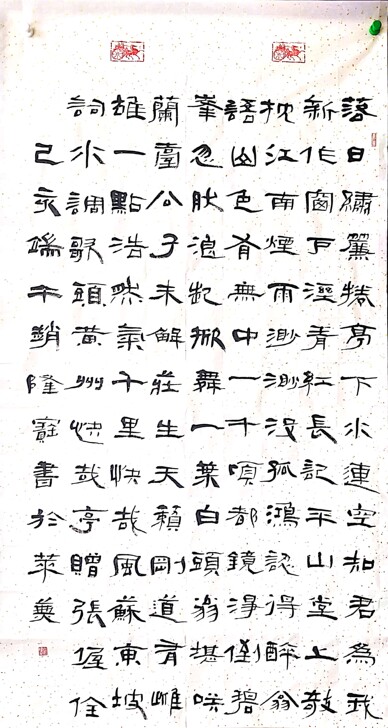 落日繡簾捲亭下水連空知君為我
新作窗戶溼青紅長記平山堂上欹
枕江南煙雨渺渺沒孤鴻認得醉翁
語山色有無中一千頃都鏡淨倒碧
峯忽肰浪起掀舞一葉白頭翁堪咲
蘭臺公子未解莊生天籟剛道有雌
雄一點浩然氣千里快哉風蘇東坡
詞水調歌頭黃州快哉亭贈張偓佺
己亥端午隆寶書於萊蕪